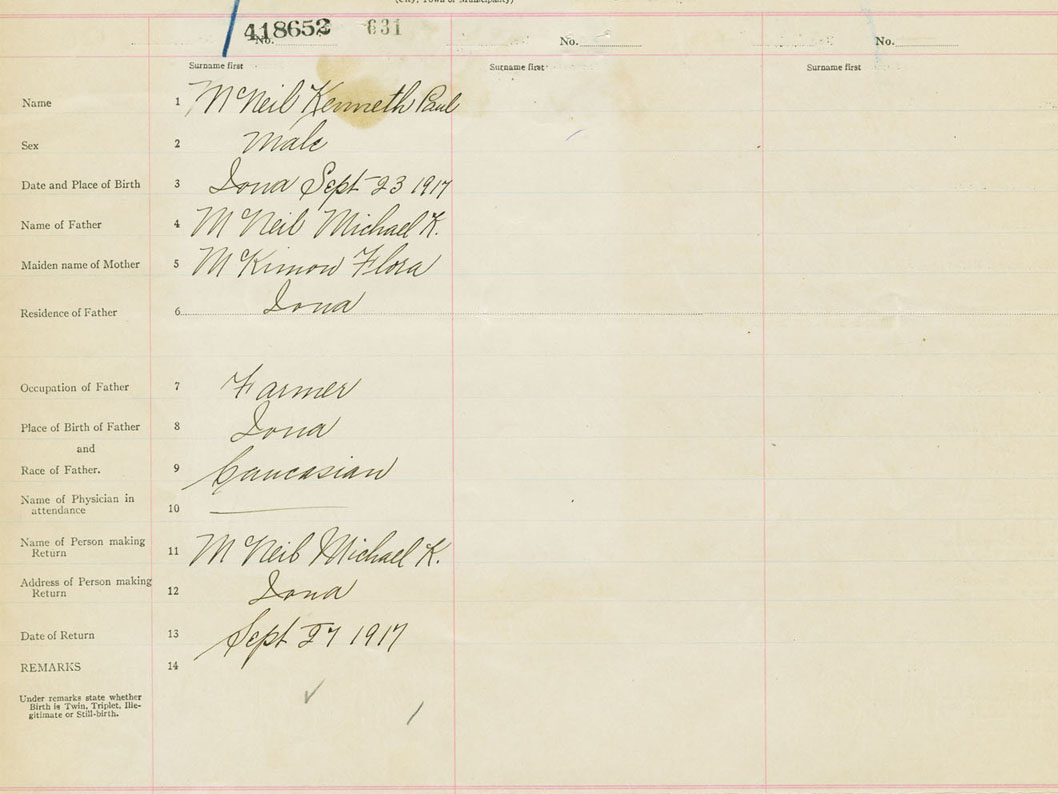 (City, Town or Municipality)
418652 631
No. No. No.
Surname first Surname first Surname first
Name 1 McNeil Kenneth Paul
Sex 2 Male
Date and Place of Birth 3 Iona Sept 23 1917
Name of Father 4 McNeil Michael K.
Maiden name of Mother 5 McKinnon Flora
Residence of Father 6 Iona
Occupation of Father 7 Farmer
Place of Birth of Father 8 Iona
and
Race of Father. 9 Caucasian
Name of Physician in
attendance 10
Name of Person making
Return 11 McNeil Michael K.
Address of Person making
Return 12 Iona
Date of Return 13 Sept 27 1917
REMARKS 14
Under remarks state whether
Birth is Twin, Triplet, Ille-
gitimate or Still-birth.